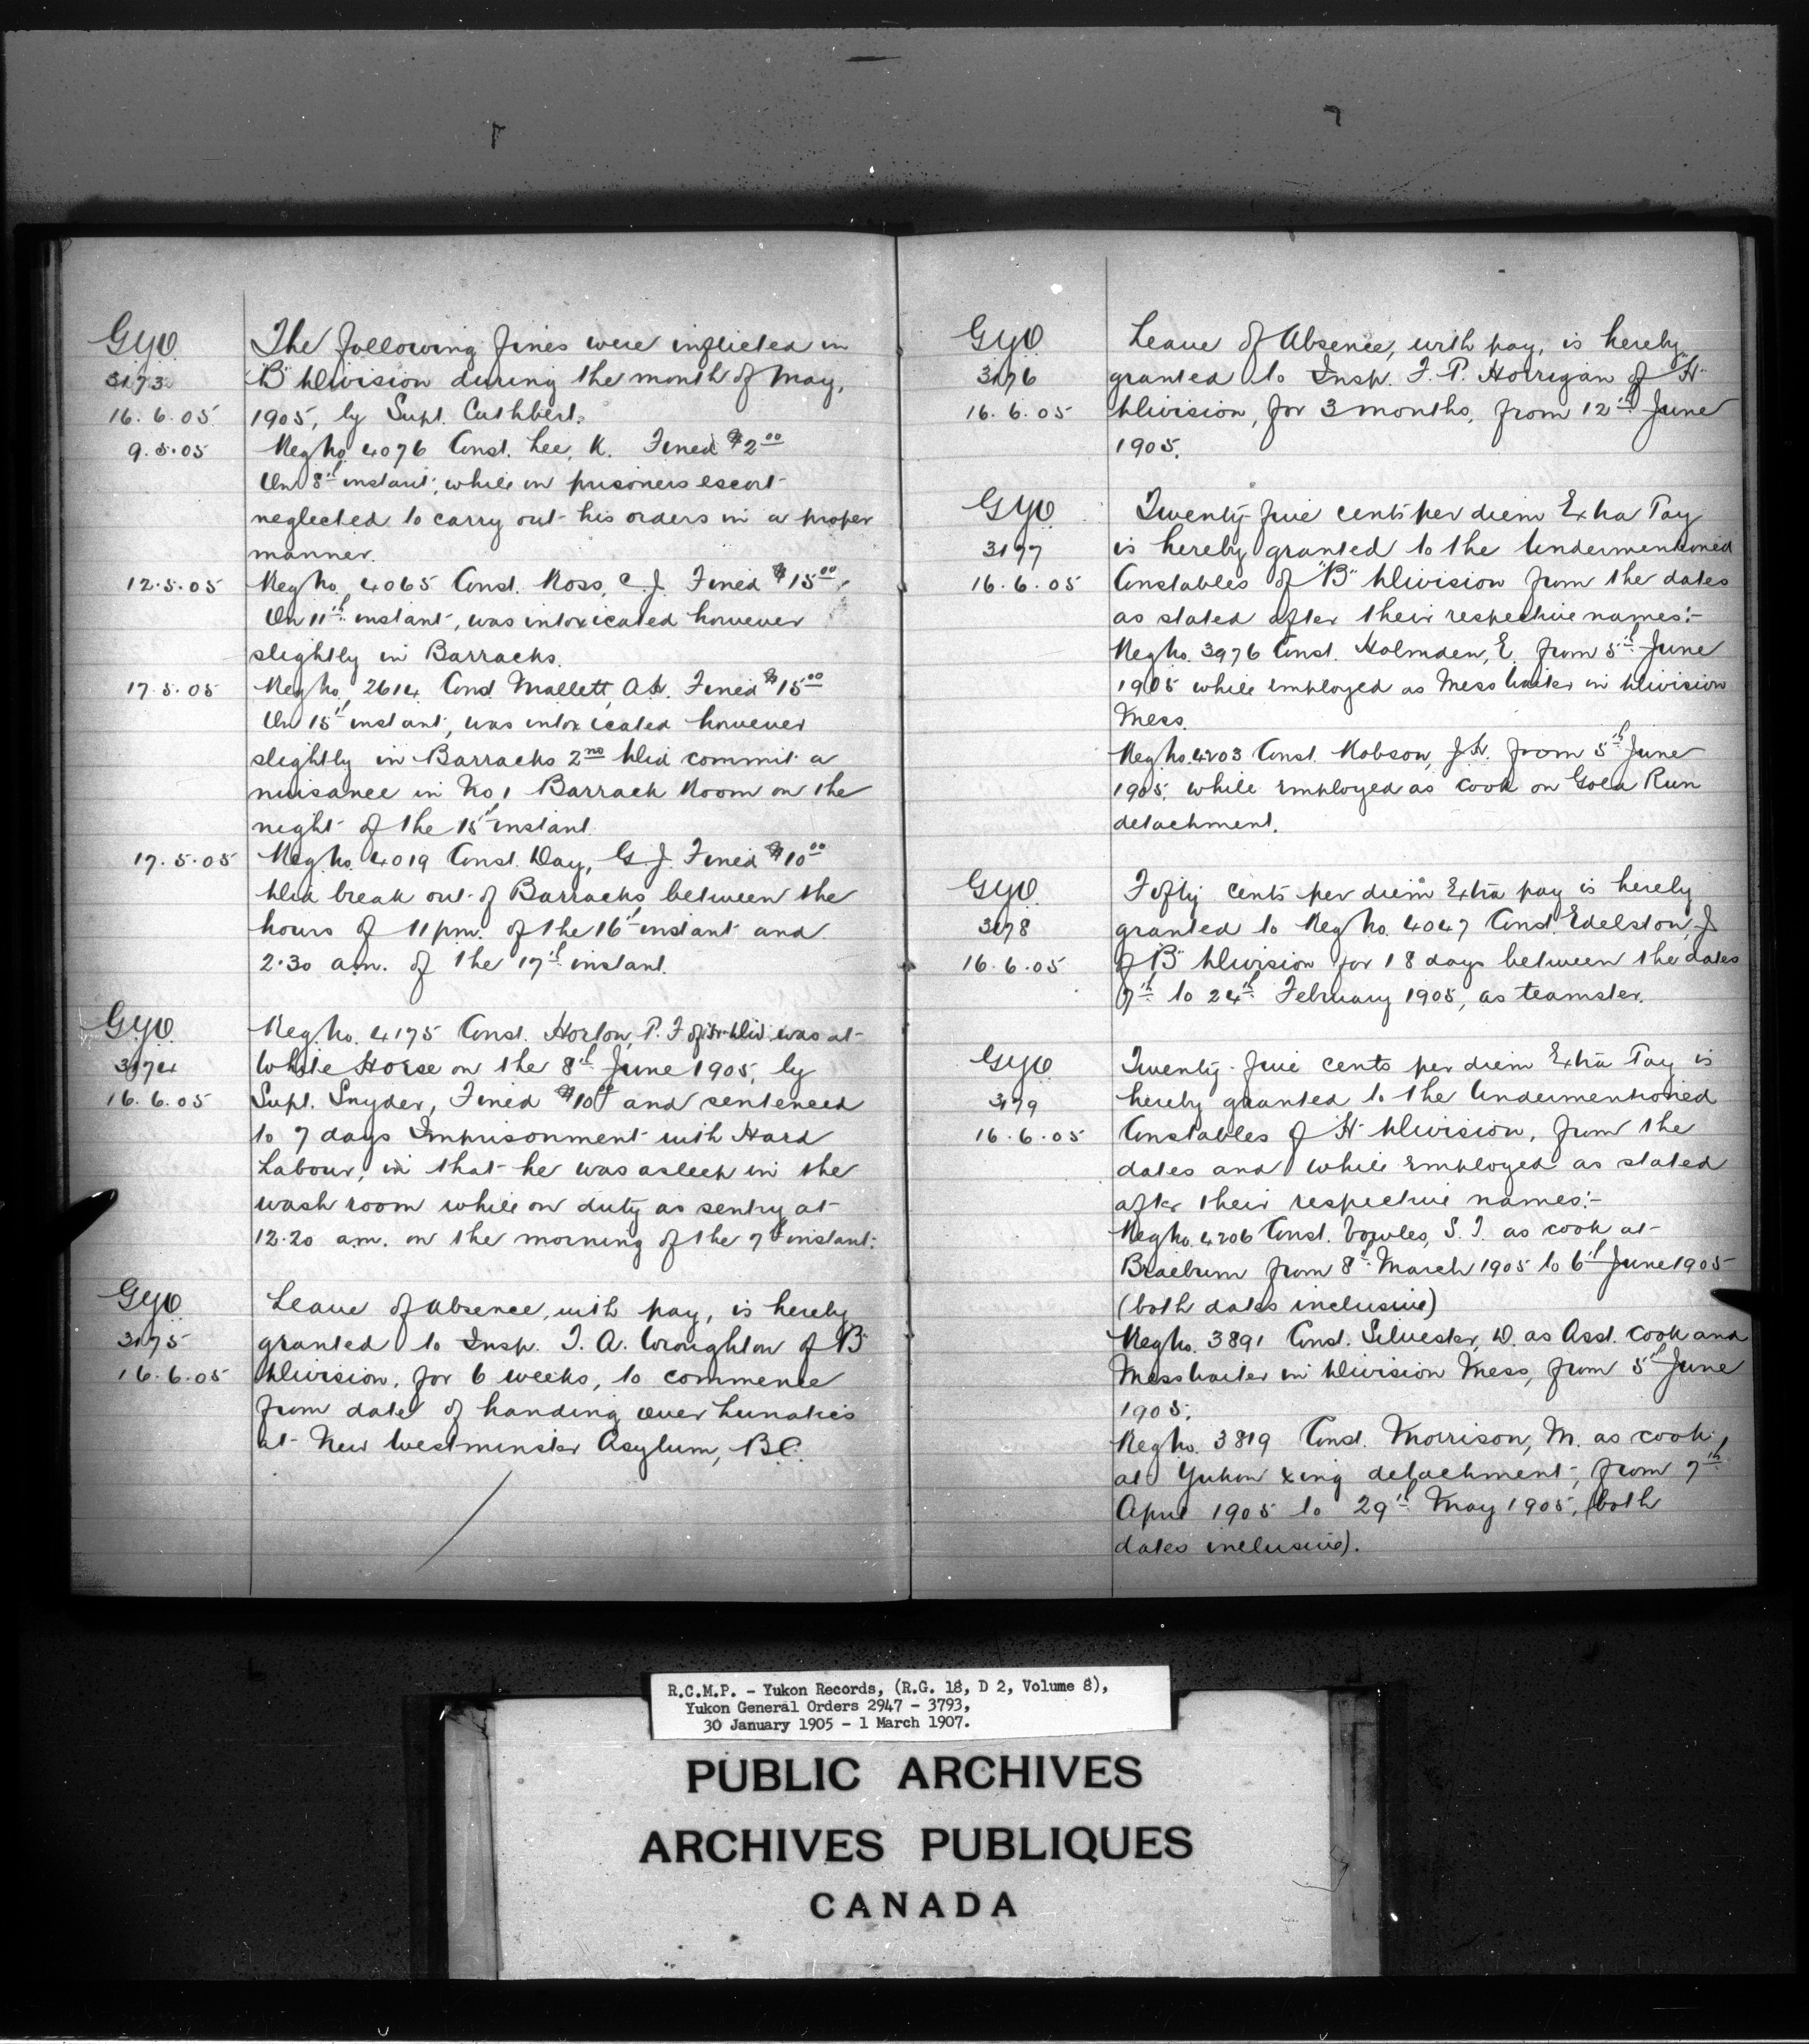 GYO
3173
16.6.05
The following fines were inflicted in
"B" Division during the month of May,
1905, by Supt. Cuthbert.
9.5.05
Reg No. 4076 Const. Lee, K. Fined $2.00
On 8th instant, while on prisoners escort
neglected to carry out his orders in a proper
manner.
12.5.05
Reg No. 4065 Const. Ross, C.J. Fined $15.00
On 11th instant, was intoxicated however
slightly in Barracks.
17.5.05
Reg No. 2614 Const Mallett, A.H. Fined $15.00
On 15th instant, was intoxicated however
slightly in Barracks 2nd Did commit a
nuisance in No 1 Barrack Room on the
night of the 15th instant.
17.5.05
Reg No. 4019 Const. Day, G.J. Fined $10.00
Did break out of Barracks between the
hours of 11 pm. of the 16th instant and
2.30 a.m. of the 17th instant.
GYO
3174
16.6.05
Reg. No. 4175 Const. Horton, P. F of "H" Div. was at
White Horse on the 8th June 1905, by
Supt. Snyder, Fined $10.00 and sentenced
to 7 days Imprisonment with Hard
Labour, in that he was asleep in the
wash room while on duty as sentry at
12.20 a.m. on the morning of the 7th instant.
GYO
3175
16.6.05
Leave of absence, with pay, is hereby
granted to Insp. T. A. Wroughton of "B"
Division, for 6 weeks, to commence
from date of handing over Lunatics
at New Westminster Asylum, B.C.
GYO
3176
16.6.05
Leave of Absence, with pay, is hereby
granted to Insp. F. P. Horrigan of "H"
Division, for 3 months, from 12th June
1905.
GYO
3177
16.6.05
Twenty-five cents per diem Extra Pay
is hereby granted to the Undermentioned
Constables of "B" Division from the dates
as stated after their respective names:-
Reg No. 3976 Const. Holmden, E. from 5th June
1905 while employed as Mess Waiter in Division
Mess.
Reg No. 4203 Const. Robson, J.H. from 5th June
1905. while employed as cook on Gold Run
detachment.
GYO
3178
16.6.05
Fifty cents per diem Extra pay is hereby
granted to Reg No. 4047 Const. Edelston, J
of "B" Division for 18 days between the dates
7th to 24th February 1905, as teamster.
GYO
3179
16.6.05
Twenty-five cents per diem Extra Pay is
hereby granted to the Undermentioned
Constables of "H" Division, from the
dates and while employed as stated
after their respective names:-
Reg No. 4206 Const. Vowles, S. T. as cook at
Braeburn from 8th March 1905 to 6th June 1905
(both dates inclusive)
Reg No. 3891 Const. Silvester, D. as Asst. cook and
Mess Waiter in Division Mess, from 5th June
1905.
Reg No. 3819 Const. Morrison, M. as cook
at Yukon Xing detachment, from 7th
April 1905 to 29th May 1905, (both
dates inclusive).
R.C.M.P. - Yukon Records, (R.G. 18, D 2, Volume 8),
Yukon General Orders 2947 - 3793,
30 January 1905 - 1 March 1907.
PUBLIC ARCHIVES
ARCHIVES PUBLIQUES
CANADA